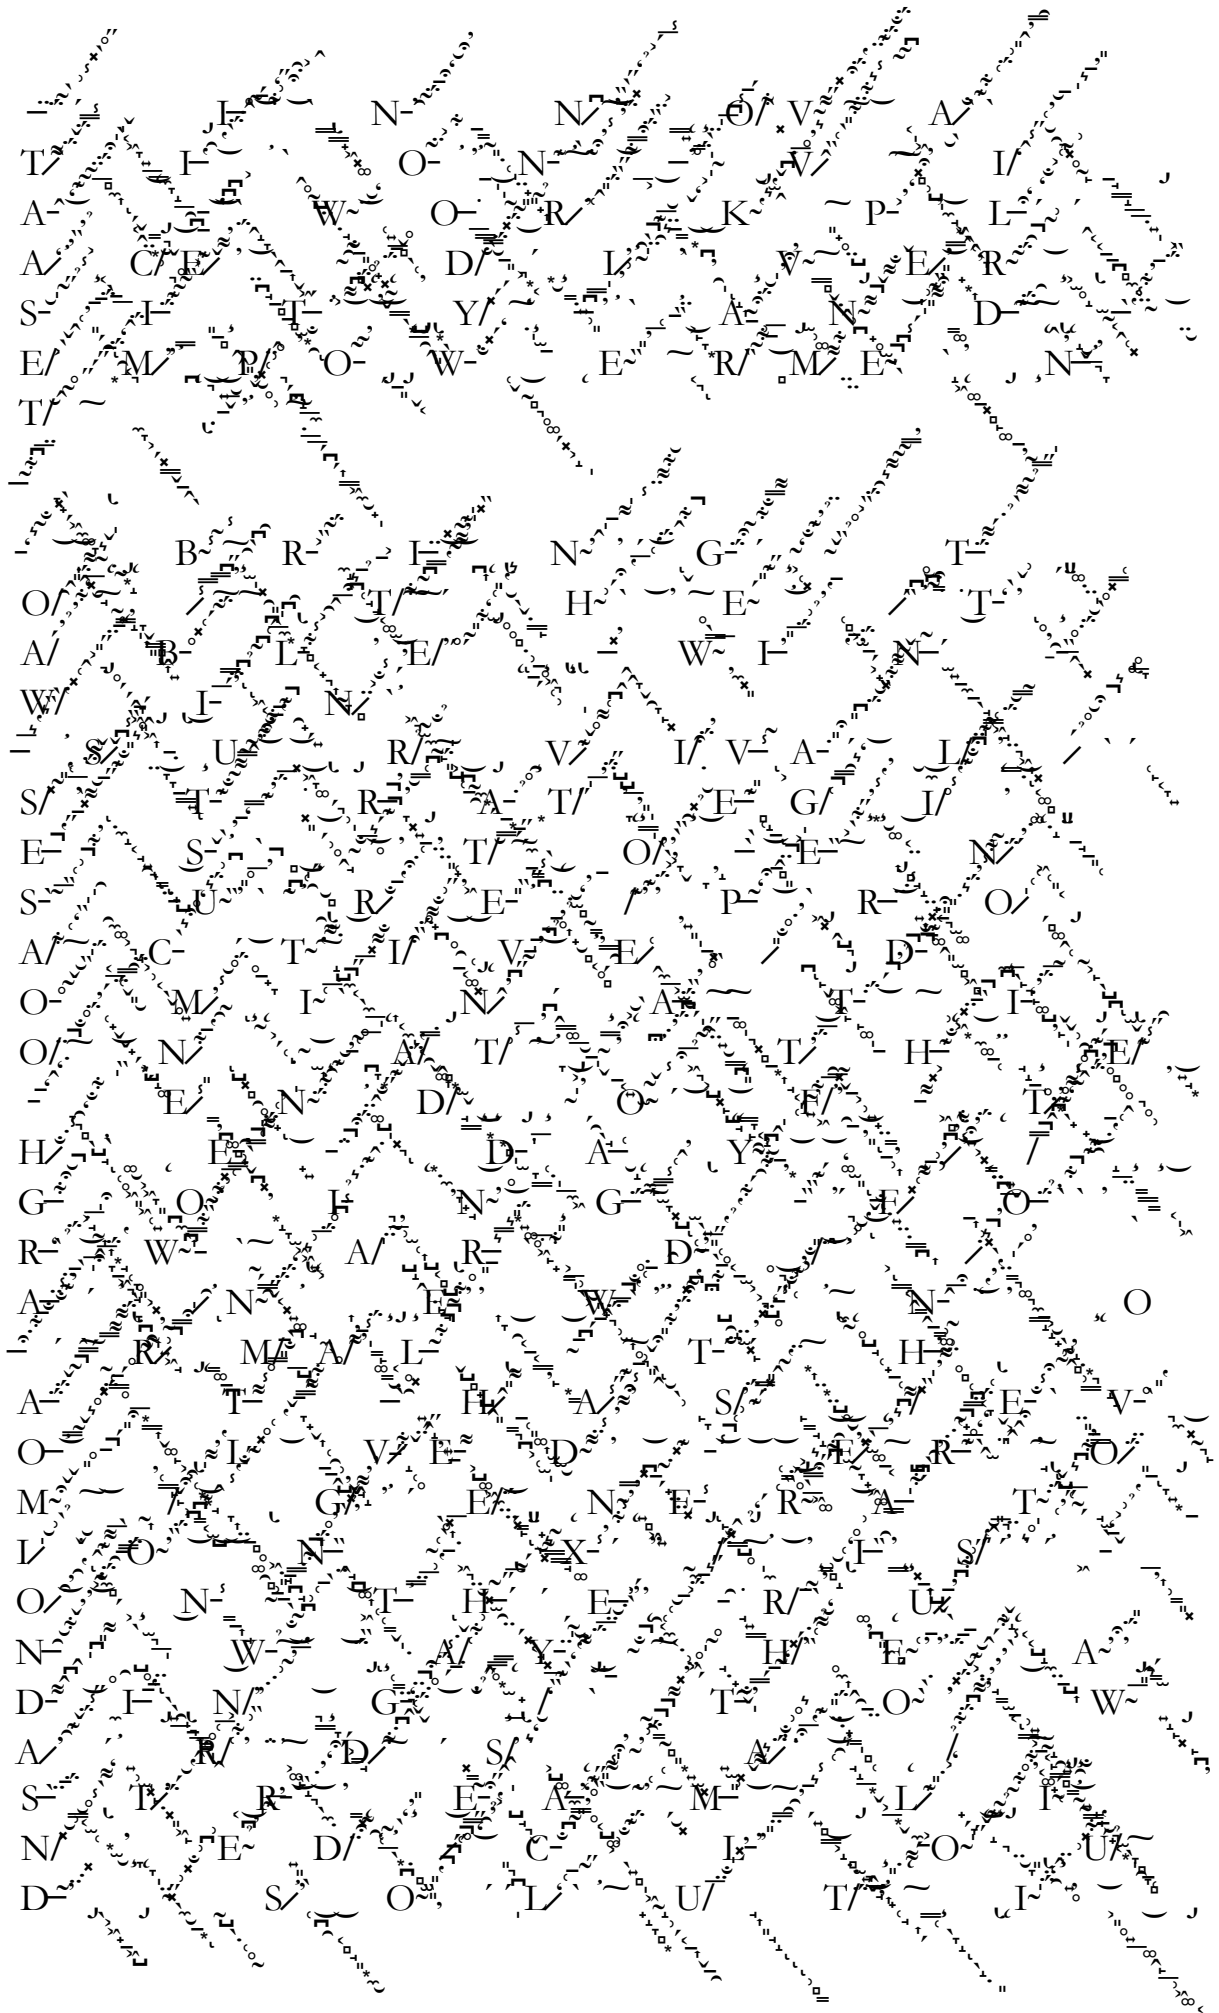 INNOVA
TION VI
A WORKPL
ACE DIVER
SITY AND
EMPOWERMEN
T
BRING T
O THE T
ABLE WIN
WIN
SURVIVAL
STRATEGI
ES TO EN
SURE PRO
ACTIVE D
OMINATI
ON AT THE
END OF T
HE DAY
GOING FO
RWARD
A NEW NO
RMAL TH
AT HAS EV
OLVED FRO
M GENERAT
ION X IS
ON THE RU
NWAY HEA
DING TO W
ARDS A
STREAMLI
NED CLOU
D SOLUTI